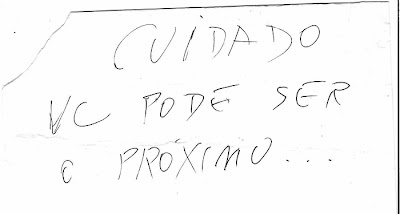 CUIDADO
VC PODE SER
O PRÓXIMO...